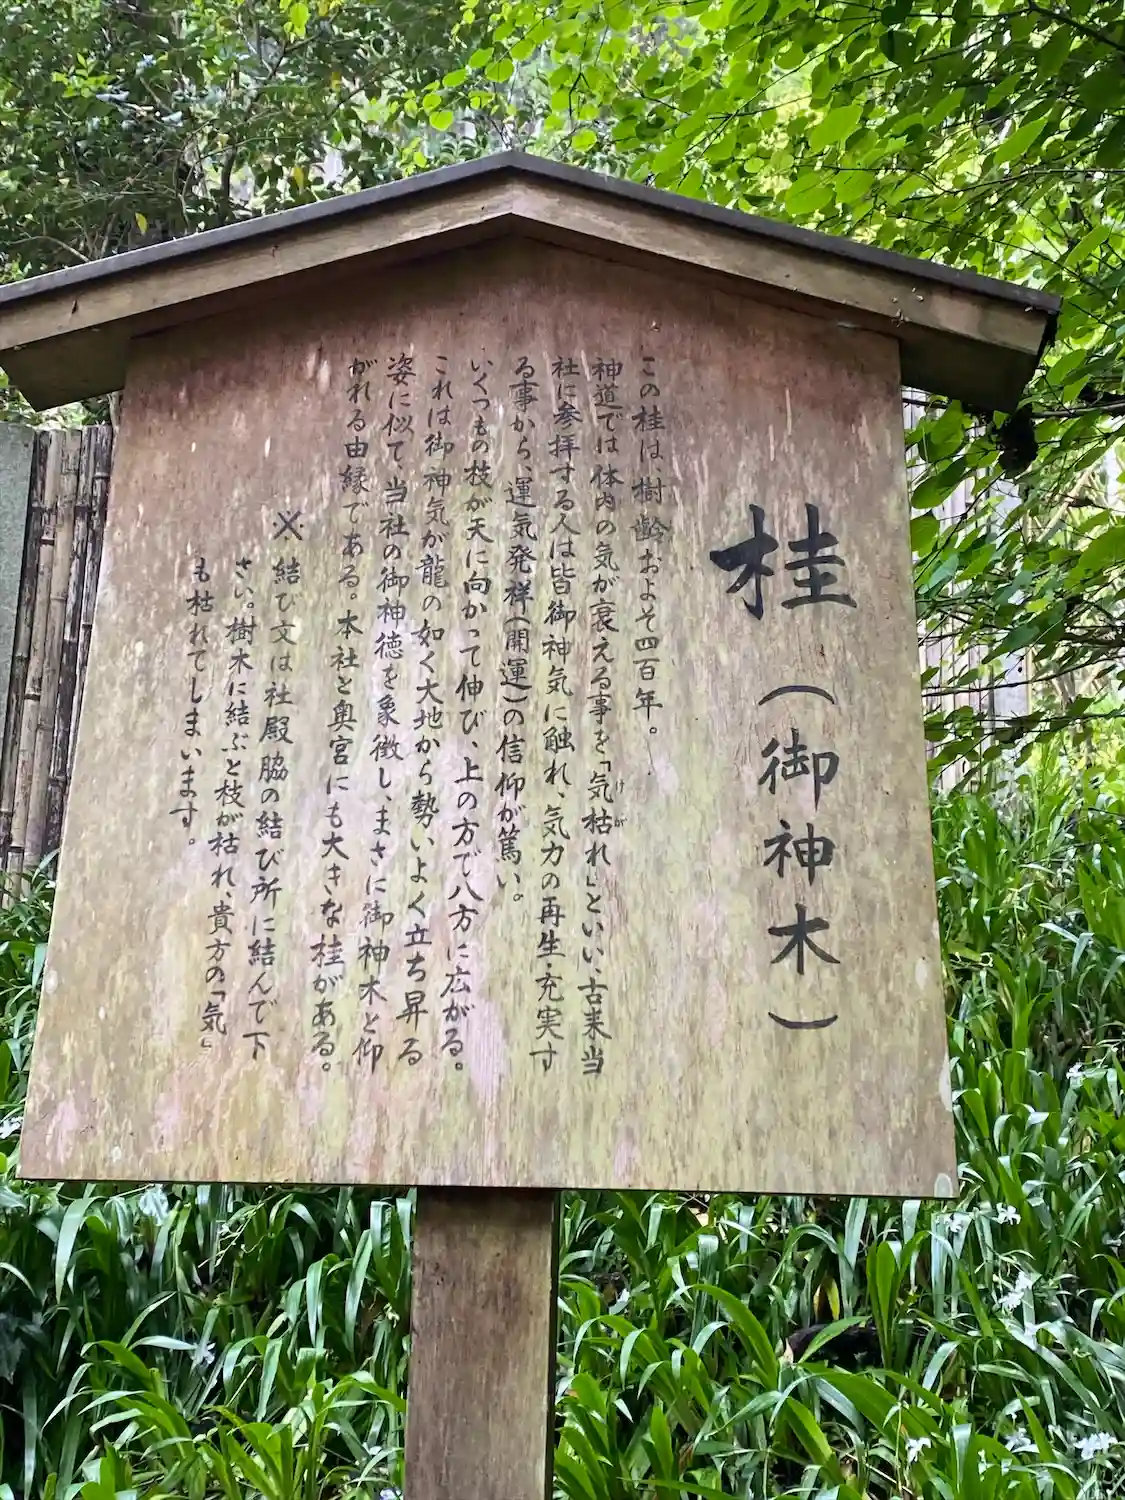 桂（御神木）
この桂は、樹齢およそ四百年。
神道では体内の気が衰える事を「気枯れ」といい、古来当
けが
社に参拝する人は皆御神気に触れ、気力の再生・充実す
る事から、運気発祥（開運）の信仰が篤い。
いくつもの枝が天に向かって伸び、上の方で八方に広がる。
これは御神気が龍の如く大地から勢いよく立ち昇る
姿に似て、当社の御神徳を象徴し、まさに御神木と仰
がれる由縁である。本社と奥宮にも大きな桂がある。
※結び文は社殿脇の結び所に結んで下
さい。樹木に結ぶと枝が枯れ、貴方の「気」
も枯れてしまいます。